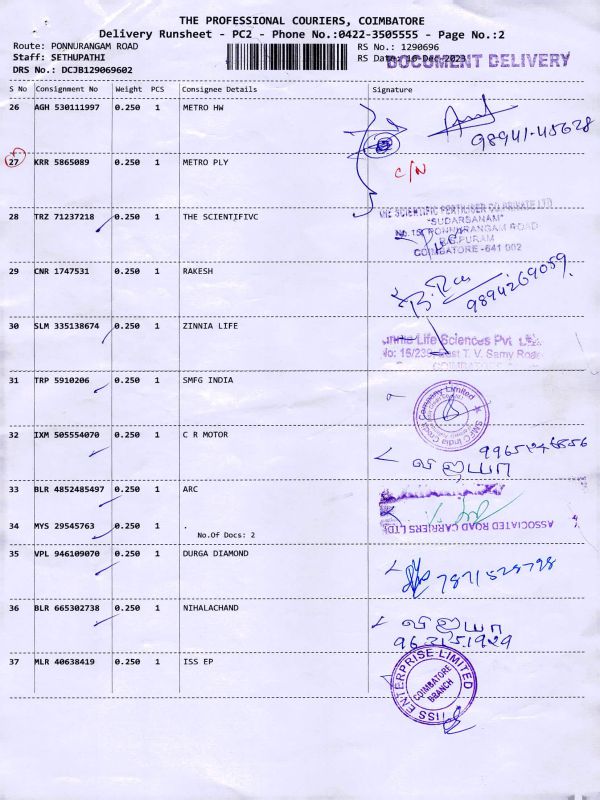 THE PROFESSIONAL COURIERS, COIMBATORE
Delivery Runsheet - PC2 - Phone No.:0422-3505555 - Page No.:2
Route: PONNURANGAM ROAD
RS No.: 1290696
Staff: SETHUPATHI
RS Date: 16-Dec-2023
DOCUMENT DELIVERY
DRS No.: DCJB129069602
S No Consignment No Weight PCS Consignee Details Signature
26 AGH 530111997 0.250 1 METRO HW
98941-45628
27 KRR 5865089 0.250 1 METRO PLY
C/N
28 TRZ 71237218 0.250 1 THE SCIENTIFIVC
THE SCIENTIFIC FERTILISER CO PRIVATE LTD
"SUDARSANAM"
No.15, PONNURANGAM ROAD
R.S.PURAM
COIMBATORE -641 002
29 CNR 1747531 0.250 1 RAKESH
9894269059
30 SLM 335138674 0.250 1 ZINNIA LIFE
Life Sciences Pvt
T. V. Samy Road
31 TRP 5910206 0.250 1 SMFG INDIA
SMFG India Credit Company Limited
32 IXM 505554070 0.250 1 C R MOTOR
விஜயா
33 BLR 4852485497 0.250 1 ARC
ASSOCIATED ROAD CARRIERS LTD
34 MYS 29545763 0.250 1 .
No.Of Docs: 2
35 VPL 946109070 0.250 1 DURGA DIAMOND
7871528798
36 BLR 665302738 0.250 1 NIHALACHAND
விஜயா
37 MLR 40638419 0.250 1 ISS EP
IISS ENTERPRISE LIMITED
COIMBATORE
BRANCH